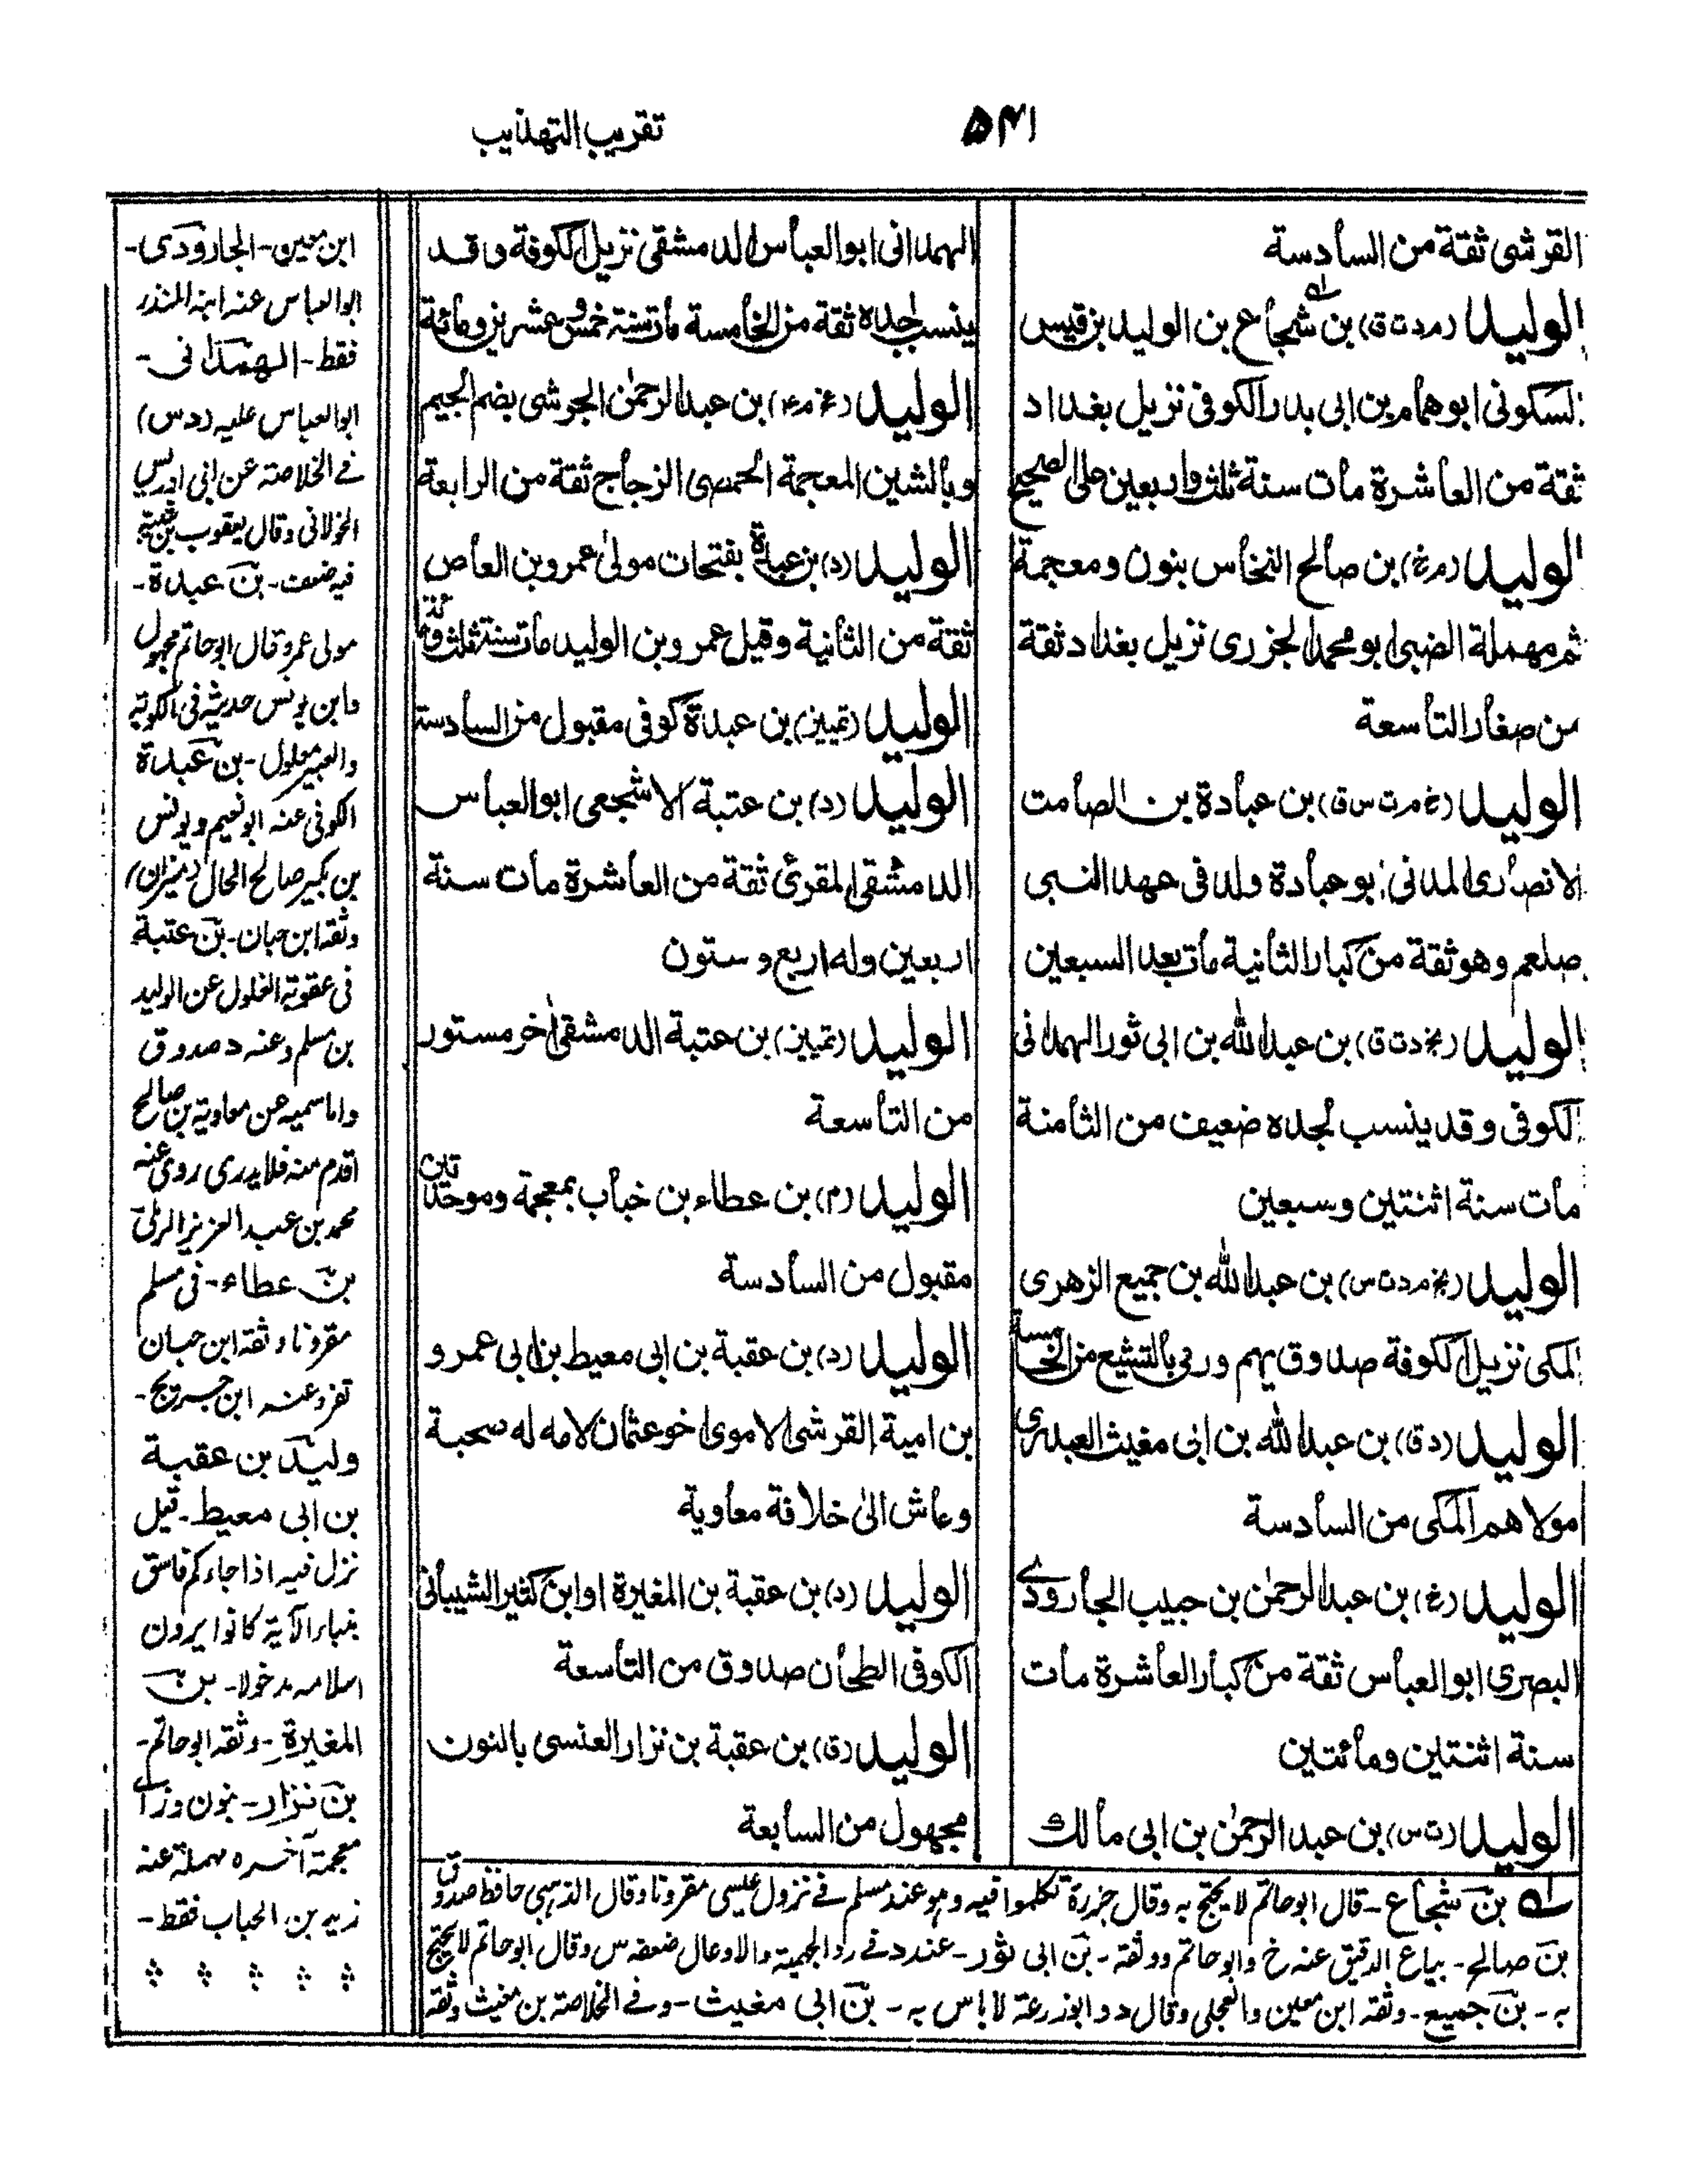 تقريب التهذيب
۵۴۱
القرشي ثقة من السادسة
الوليد (م د ت ق) بن شجاع بن الوليد بن قيس
السكوني ابو همام بن ابي بدر الكوفي نزيل بغداد
ثقة من العاشرة مات سنة ثلث واربعين على الصحيح
الوليد (م غ) بن صالح النخاس بنون ومعجمة
ثم مهملة الضبي ابو محمد الجزري نزيل بغداد ثقة
من صغار التاسعة
الوليد (خ م ت س ق) بن عبادة بن الصامت
الانصاري المدني ابو عبادة ولد في عهد النبي
صلعم وهو ثقة من كبار الثانية مات بعد السبعين
الوليد (بخ د ت ق) بن عبد الله بن ابي ثور الهمداني
الكوفي وقد ينسب لجده ضعيف من الثامنة
مات سنة اثنتين وسبعين
الوليد (بخ م د ت س) بن عبد الله بن جميع الزهري
المكي نزيل الكوفة صدوق يهم ورمي بالتشيع من الخامسة
الوليد (د ق) بن عبد الله بن ابي مغيث العبدري
مولاهم المكي من السادسة
الوليد (خ) بن عبد الرحمٰن بن حبيب الجارودي
البصري ابو العباس ثقة من كبار العاشرة مات
سنة اثنتين ومأتين
الوليد (ت س) بن عبد الرحمٰن بن ابي مالك
الهمداني ابو العباس الدمشقي نزيل الكوفة وقد
ينسب لجده ثقة من الخامسة مات سنة خمس وعشرين ومائة
الوليد (عخ م ۴) بن عبد الرحمٰن الجرشي بضم الجيم
وبالشين المعجمة الحمصي الزجاج ثقة من الرابعة
الوليد (د) بن عبدة بفتحات مولىٰ عمرو بن العاص
ثقة من الثانية وقيل عمرو بن الوليد مات سنة ثلث ومائة
الوليد (تمييز) بن عبدة كوفي مقبول من السادسة
الوليد (د) بن عتبة الاشجعي ابو العباس
الدمشقي المقرئ ثقة من العاشرة مات سنة
اربعين وله اربع وستون
الوليد (تمييز) بن عتبة الدمشقي اٰخر مستور
من التاسعة
الوليد (م) بن عطاء بن خباب بمعجمة وموحدتين
مقبول من السادسة
الوليد (د) بن عقبة بن ابي معيط بن ابي عمرو
بن امية القرشي الاموي اخو عثمان لامه له صحبة
وعاش الىٰ خلافة معاوية
الوليد (د) بن عقبة بن المغيرة او ابن كثير الشيباني
الكوفي الطحان صدوق من التاسعة
الوليد (ق) بن عقبة بن نزار العنسي بالنون
مجهول من السابعة
ابن معين - الجارودي -
ابو العباس عنه ابنه المنذر
فقط - الهمداني -
ابو العباس عليه (د س)
في الخلاصة عن ابي ادريس
الخولاني وقال يعقوب بن شيبة
فيه ضعف - بن عبدة -
مولى عمرو قال ابو حاتم مجهول
وابن يونس حديثه في الكوبة
والغبيراء معلول - بن عبدة
الكوفي عنه ابو نعيم ويونس
بن بكير صالح الحال (ميزان)
وثقه ابن حبان - بن عتبة
في عقوبة الغلول عن الوليد
بن مسلم وعنه د صدوق
واما سميه عن معاوية بن صالح
اقدم منه فلا يدرى روى عنه
محمد بن عبد العزيز الرملي
بن عطاء - في مسلم
مقرونا وثقه ابن حبان
تفرد عنه ابن جريج -
وليد بن عقبة
بن ابي معيط - قيل
نزل فيه اذا جاءكم فاسق
بنباء الآية كانوا يرون
اسلامه مدخولا - بن
المغيرة - وثقه ابو حاتم -
بن نزار - بنون وزاے
معجمة آخره مهملة عنه
زيد بن الحباب فقط -
له بن شجاع - قال ابو حاتم لا يحتج به وقال جزرة تكلموا فيه وهو عند مسلم في نزول عيسى مقرونا وقال الذهبي حافظ صدوق
بن صالح - بياع الدقيق عنه خ وابو حاتم ووثقه - بن ابي ثور - عند د في رد الجهمية والاوعال ضعفه س وقال ابو حاتم لا يحتج
به - بن جميع - وثقه ابن معين والعجلي وقال د وابو زرعة لا باس به - بن ابي مغيث - وفي الخلاصة بن مغيث وثقه